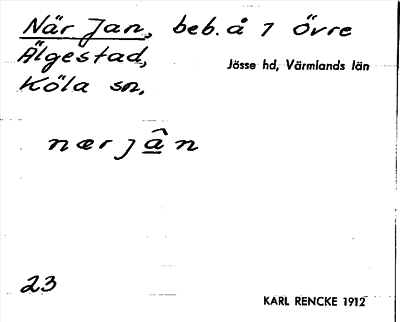 När Jan, beb. å 7 Övre
Älgestad,
Jösse hd, Värmlands län
Köla sn.
nærjân
23
KARL RENCKE 1912